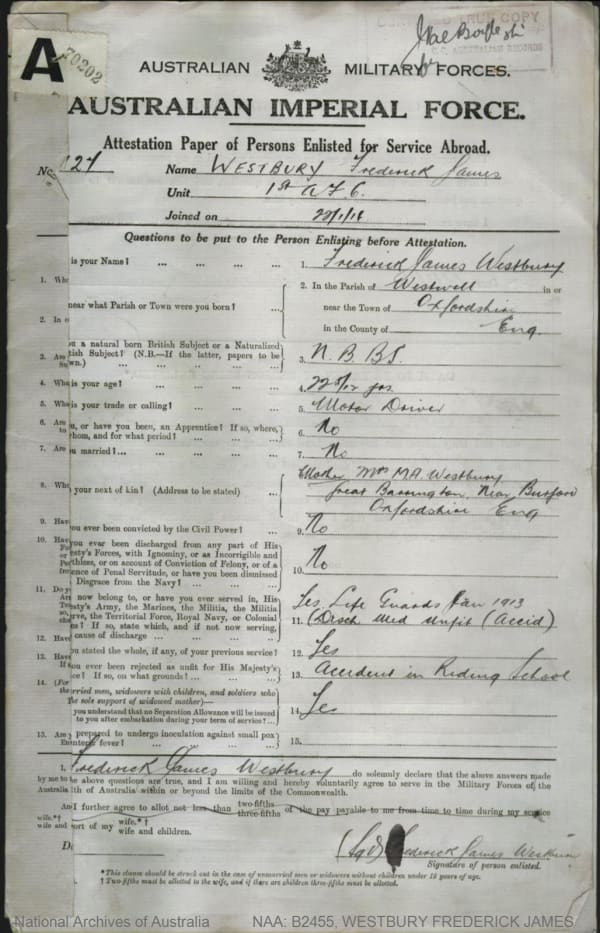 A
70202
TRUE COPY
AUSTRALIAN MILITARY FORCES.
AUSTRALIAN IMPERIAL FORCE.
Attestation Paper of Persons Enlisted for Service Abroad.
No. 127 Name WESTBURY Frederick James
Unit 1st A F C.
Joined on 22/1/16
Questions to be put to the Person Enlisting before Attestation.
is your Name? ... ... ... ... 1. Frederick James Westbury
1. Wh
near what Parish or Town were you born? ... 2. In the Parish of Westwell in or
near the Town of Oxfordshire
2. In in the County of Eng.
u a natural born British Subject or a Naturalized
3. Are tish Subject? (N.B.—If the latter, papers to be 3. N. B. BS.
wn.) ... ... ... ...
4. Wha is your age? ... ... ... ... 4. 22 5/12 yrs
5. Wha is your trade or calling? ... ... ... 5. Motor Driver
6. Are u, or have you been, an Apprentice? If so, where,
to whom, and for what period? ... ... ... 6. No
7. Are u married? ... ... ... ... 7. No
Mother Mrs M.A. Westbury
8. Who your next of kin? (Address to be stated) ... 8. Great Barrington, Near Burford
Oxfordshire Eng
9. Have you ever been convicted by the Civil Power? ... 9. No
10. Have you ever been discharged from any part of His
esty's Forces, with Ignominy, or as Incorrigible and
thless, or on account of Conviction of Felony, or of a
ence of Penal Servitude, or have you been dismissed
Disgrace from the Navy? ... ... ... 10. No
11. Do yo
now belong to, or have you ever served in, His
esty's Army, the Marines, the Militia, the Militia
rve, the Territorial Force, Royal Navy, or Colonial
es? If so, state which, and if not now serving,
cause of discharge ... ... ...
Yes, Life Guards Jan 1913
11. (Disch Med Unfit (Accid)
12. Have you stated the whole, if any, of your previous service? 12. Yes
13. Have you ever been rejected as unfit for His Majesty's
ice? If so, on what grounds? ... ... ... 13. Accident in Riding School
14. (For
rried men, widowers with children, and soldiers who
the sole support of widowed mother)—
you understand that no Separation Allowance will be issued
to you after embarkation during your term of service? ... 14. Yes
15. Are y prepared to undergo inoculation against small pox
enteric fever? ... ... ... ... 15.
I, Frederick James Westbury do solemnly declare that the above answers made
by me to the above questions are true, and I am willing and hereby voluntarily agree to serve in the Military Forces of the
Australia lth of Australia within or beyond the limits of the Commonwealth.
And I further agree to allot not less than two-fifths three-fifths of the pay payable to me from time to time during my service
wife.*†
wife and ort of my wife.*† wife and children.
(Sgd) Frederick James Westbury
Signature of person enlisted.
*This clause should be struck out in the case of unmarried men or widowers without children under 18 years of age.
† Two-fifths must be allotted to the wife, and if there are children three-fifths must be allotted.
National Archives of Australia
NAA: B2455, WESTBURY FREDERICK JAMES